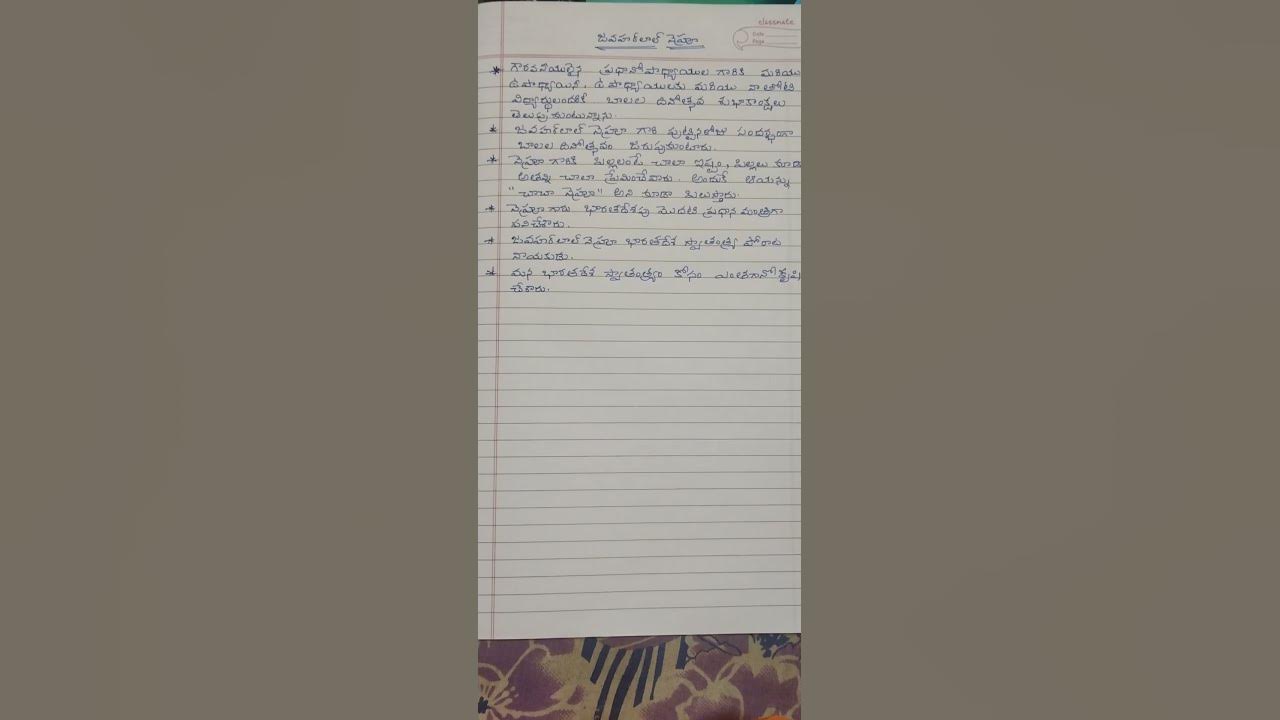 classmate
Date
Page
జవహర్‌లాల్ నెహ్రూ
* గౌరవనీయులైన ప్రధానోపాధ్యాయుల గారికి మరియు
ఉపాధ్యాయిని, ఉపాధ్యాయులకు మరియు నా తోటి
విద్యార్థులందరికీ బాలల దినోత్సవ శుభాకాంక్షలు
తెలుపుతుంటున్నాను.
* జవహర్‌లాల్ నెహ్రూ గారి పుట్టినరోజు సందర్భంగా
బాలల దినోత్సవం జరుపుకుంటారు.
* నెహ్రూ గారికి పిల్లలంటే చాలా ఇష్టం, పిల్లలు కూడా
అతన్ని చాలా ప్రేమించేవారు. అందుకే ఆయన్ను
"చాచా నెహ్రూ" అని కూడా పిలుస్తారు.
* నెహ్రూ గారు భారతదేశపు మొదటి ప్రధాన మంత్రిగా
పనిచేశారు.
* జవహర్‌లాల్ నెహ్రూ భారతదేశ స్వాతంత్ర్య పోరాట
నాయకుడు.
* మన భారతదేశ స్వాతంత్ర్యం కోసం ఎంతగానో కృషి
చేశారు.